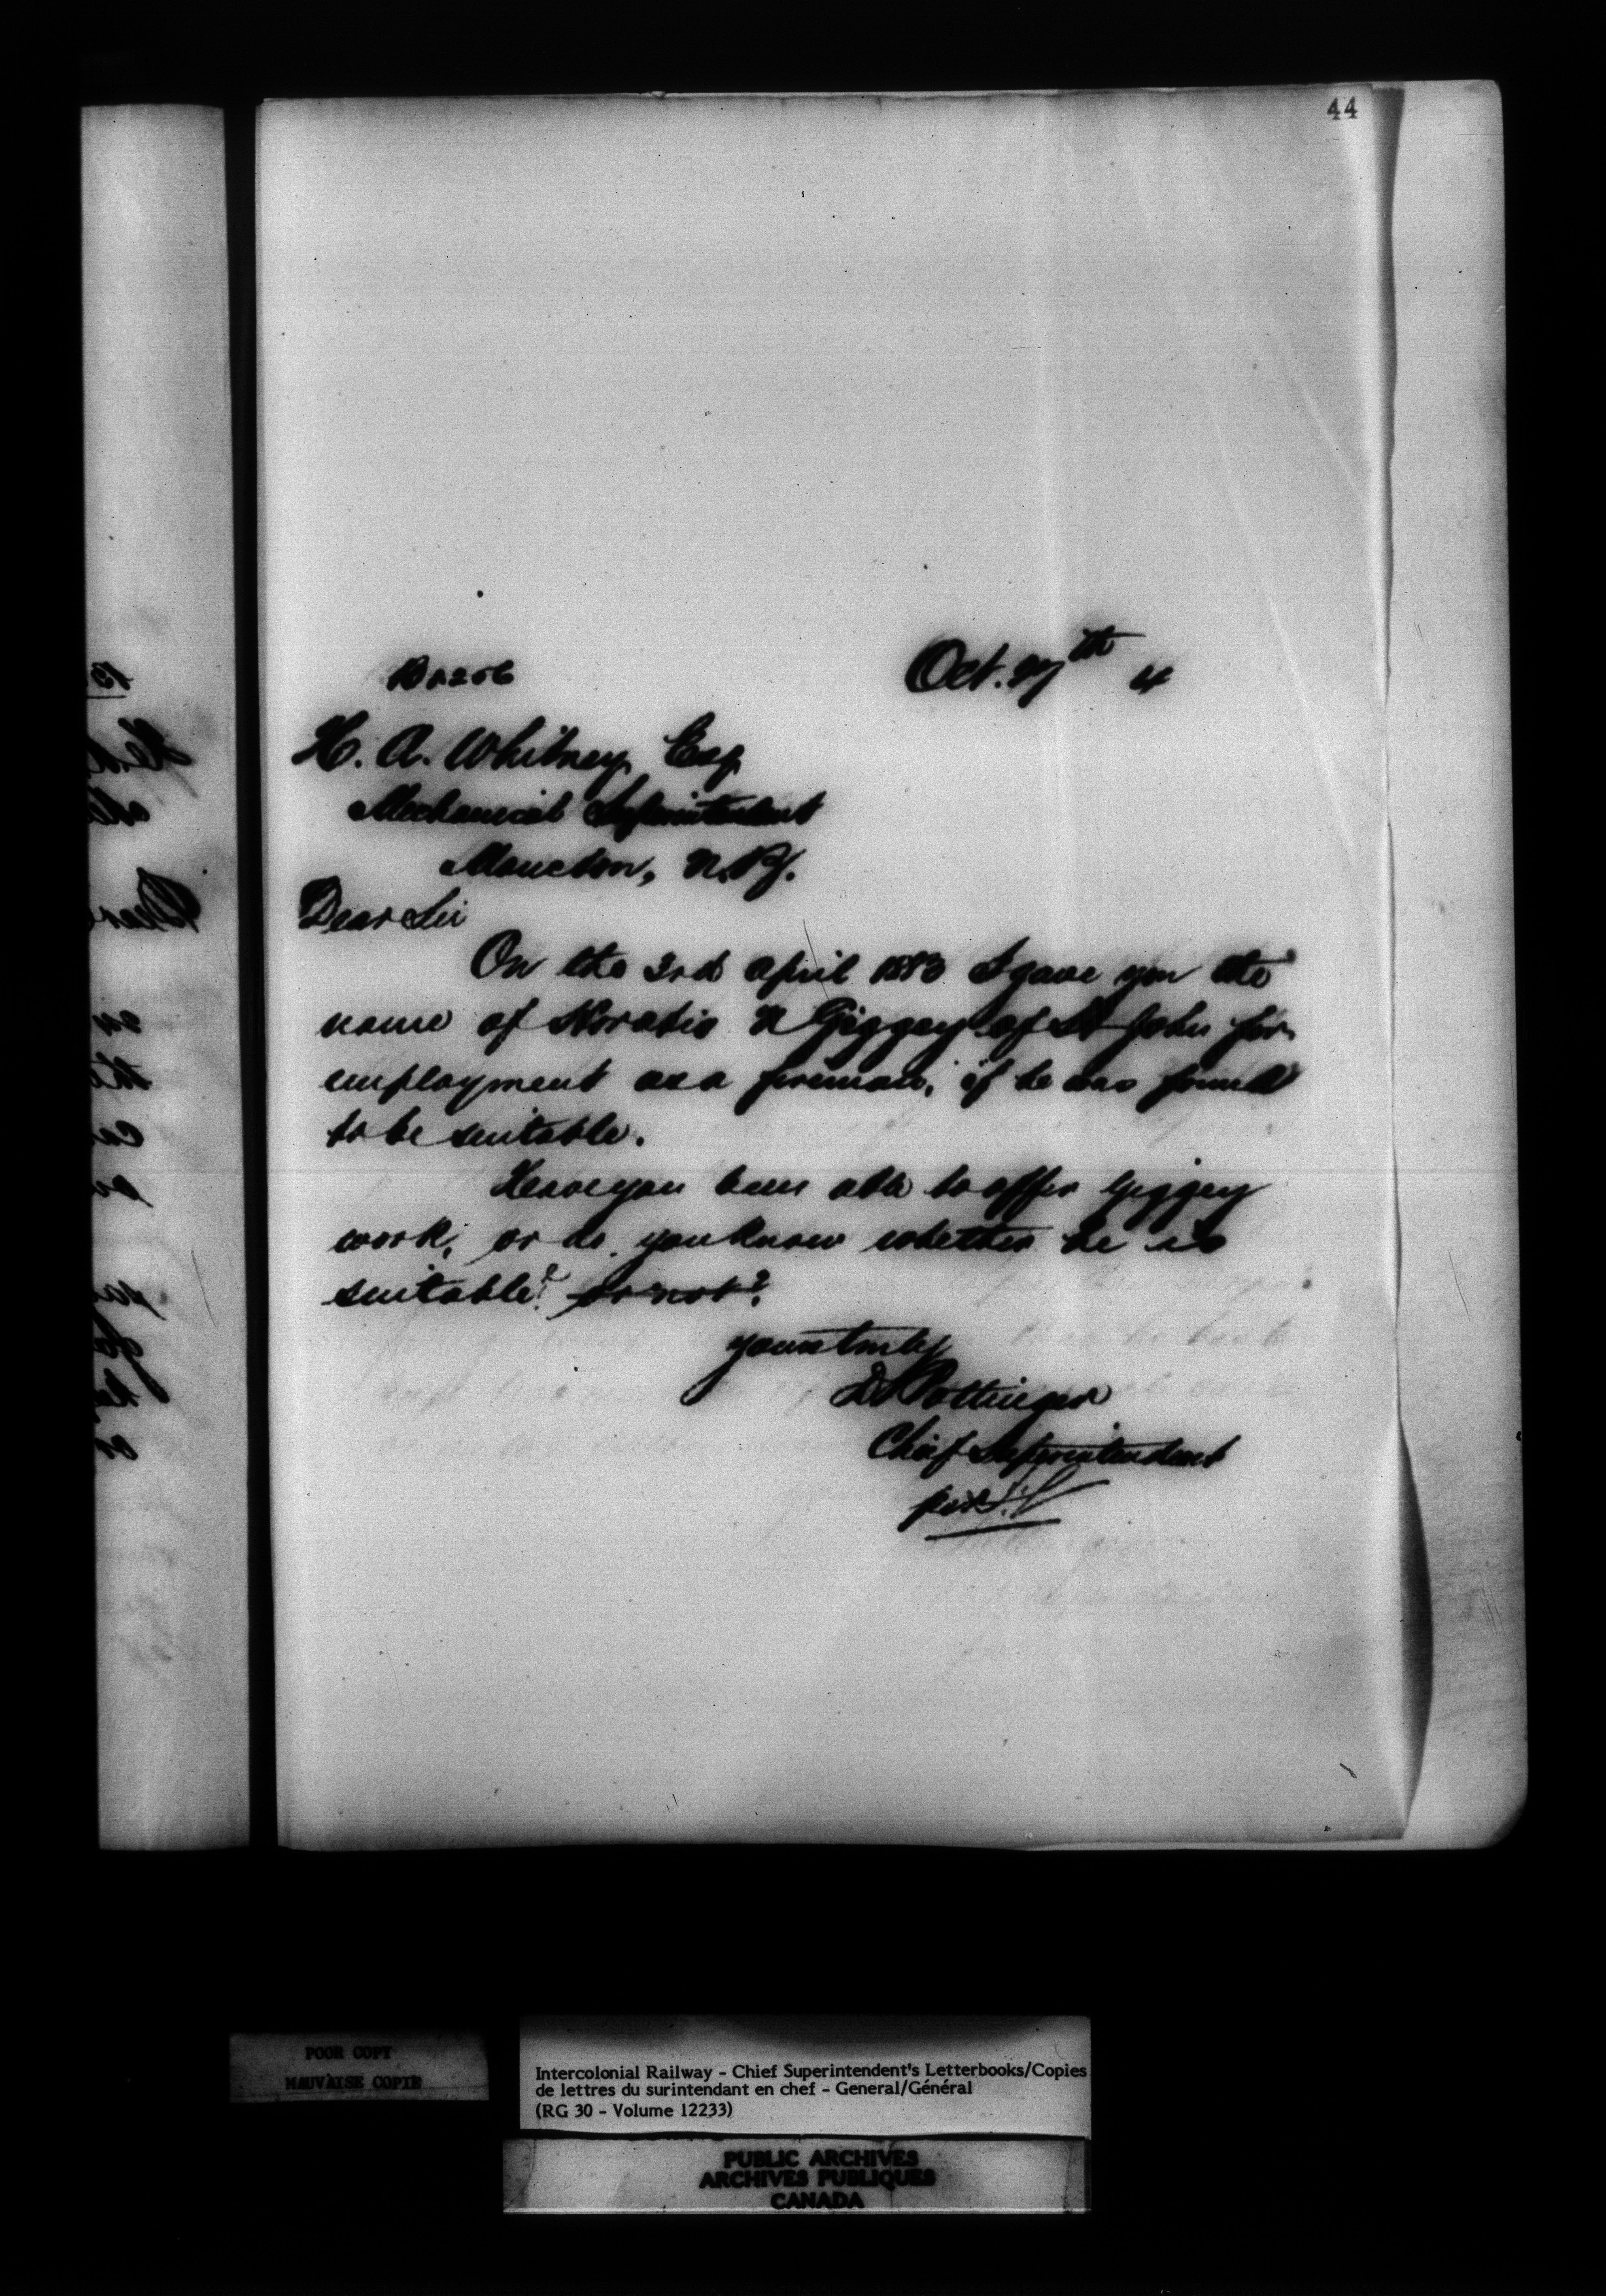 44
Oct. 27th 4
H. A. Whitney Esq
Mechanical Superintendent
Moncton, N.B.
Dear Sir
On the 3rd April 1883 I gave you the
name of Horatio N Giggey of St John for
employment as a fireman, if he was found
to be suitable.
Have you been able to offer Giggey
work, or do you know whether he is
suitable? or not?
yours truly
D Pottinger
Chief Superintendent
per
POOR COPY
MAUVAISE COPIE
Intercolonial Railway - Chief Superintendent's Letterbooks/Copies
de lettres du surintendant en chef - General/Général
(RG 30 - Volume 12233)
PUBLIC ARCHIVES
ARCHIVES PUBLIQUES
CANADA